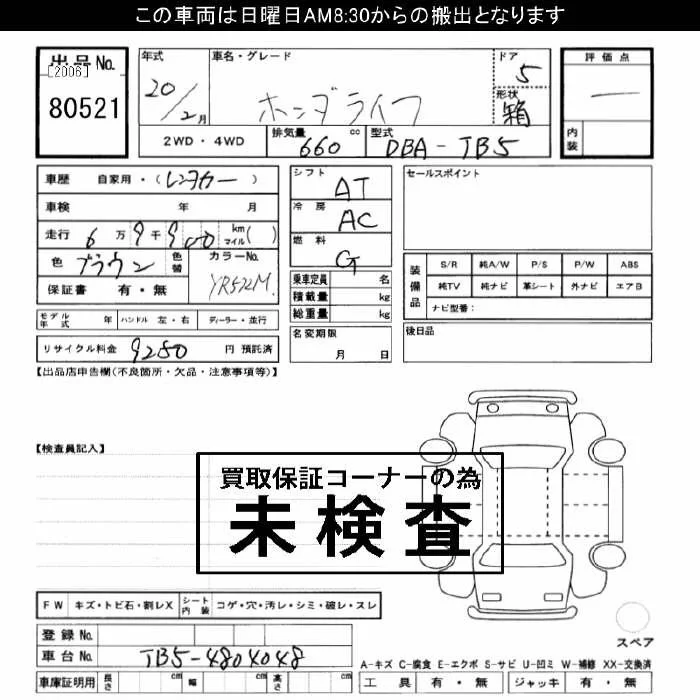 この車両は日曜日AM8:30からの搬出となります
出品No. 年式 車名・グレード ドア 評価点
[2006] 5
80521 20/2月 ホンダライフ 形状 箱 —
2WD・4WD 排気量 660 cc 型式 DBA-TB5 内装
車歴 自家用・(レンタカー) シフト AT セールスポイント
車検 年 月 冷房 AC
走行 6万9千900 km マイル( ) 燃料 G
色 ブラウン 色替 カラーNo. YR572M 乗車定員 名 装備品 S/R 純A/W P/S P/W ABS
保証書 有・無 積載量 kg 純TV 純ナビ 革シート 外ナビ エアB
総重量 kg ナビ型番:
モデル年式 年 ハンドル 左・右 ディーラー・並行 名変期限 月 日 後日品
リサイクル料金 9280 円 預託済
【出品店申告欄(不良箇所・欠品・注意事項等)】
【検査員記入】
買取保証コーナーの為
未検査
FW キズ・トビ石・割レX シート内装 コゲ・穴・汚レ・シミ・破レ・スレ
登録No. スペア
車台No. TB5-4804048 A-キズ C-腐食 E-エクボ S-サビ U-凹ミ W-補修 XX-交換済
車庫証明用 長さ cm 幅 cm 高さ cm 工具 有・無 ジャッキ 有・無